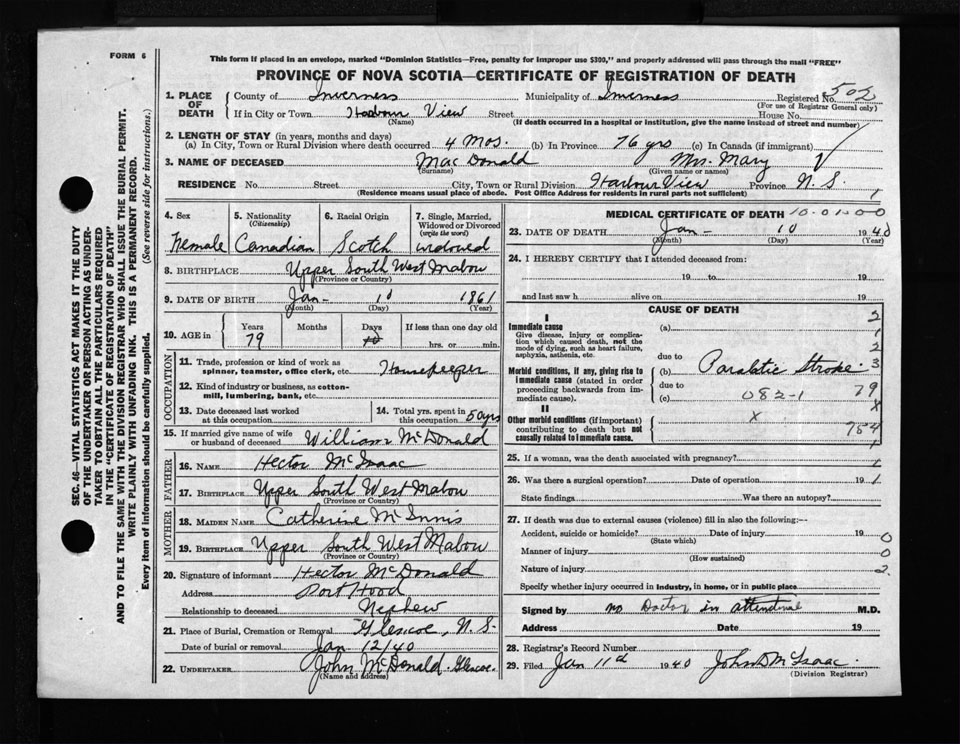 FORM 6
This form if placed in an envelope, marked "Dominion Statistics—Free, penalty for improper use $300," and properly addressed will pass through the mail "FREE"
PROVINCE OF NOVA SCOTIA—CERTIFICATE OF REGISTRATION OF DEATH
502
1. PLACE OF DEATH County of Inverness Municipality of Inverness Registered No.
(For use of Registrar General only)
If in City or Town Harbour View Street House No.
(Name) (If death occurred in a hospital or institution, give the name instead of street and number)
2. LENGTH OF STAY (in years, months and days)
(a) In City, Town or Rural Division where death occurred 4 Mos. (b) In Province 76 yrs (c) In Canada (if immigrant)
3. NAME OF DECEASED MacDonald Mrs. Mary
(Surname) (Given name or names)
RESIDENCE No. Street City, Town or Rural Division Harbour View Province N.S. 1
(Residence means usual place of abode. Post Office Address for residents in rural parts not sufficient)
4. Sex 5. Nationality 6. Racial Origin 7. Single, Married, Widowed or Divorced
(Citizenship) (write the word)
Female Canadian Scotch widowed
8. BIRTHPLACE Upper South West Mabou
(Province or Country)
9. DATE OF BIRTH Jan- 10 1861
(Month) (Day) (Year)
10. AGE in Years Months Days If less than one day old
79 10 hrs. or min.
OCCUPATION
11. Trade, profession or kind of work as spinner, teamster, office clerk, etc. Housekeeper
12. Kind of industry or business, as cotton-mill, lumbering, bank, etc.
13. Date deceased last worked at this occupation 14. Total yrs. spent in this occupation 50 yrs
15. If married give name of wife or husband of deceased William McDonald
FATHER
16. NAME Hector McIsaac
17. BIRTHPLACE Upper South West Mabou
(Province or Country)
MOTHER
18. MAIDEN NAME Catherine McInnis
19. BIRTHPLACE Upper South West Mabou
(Province or Country)
20. Signature of informant Hector McDonald
Address Port Hood
Relationship to deceased Nephew
21. Place of Burial, Cremation or Removal Glencoe, N.S.
Date of burial or removal Jan 12/40
22. UNDERTAKER John McDonald Glencoe
(Name and address)
MEDICAL CERTIFICATE OF DEATH 10-01-00
23. DATE OF DEATH Jan- 10 1940
(Month) (Day) (Year)
24. I HEREBY CERTIFY that I attended deceased from:
19 to 19
and last saw h alive on 19
CAUSE OF DEATH
I
Immediate cause
Give disease, injury or complication which caused death, not the mode of dying, such as heart failure, asphyxia, asthenia, etc.
(a)
due to
Morbid conditions, if any, giving rise to immediate cause (stated in order proceeding backwards from immediate cause).
(b) Paralatic Stroke
due to
(c) 082-1
II
Other morbid conditions (if important) contributing to death but not causally related to immediate cause.
x
2
1
2
3
79
x
754
1
25. If a woman, was the death associated with pregnancy? 1
26. Was there a surgical operation? Date of operation 19 1
State findings Was there an autopsy?
27. If death was due to external causes (violence) fill in also the following:—
Accident, suicide or homicide? Date of injury 19 0
(State which)
Manner of injury 0
(How sustained)
Nature of injury 2
Specify whether injury occurred in industry, in home, or in public place
Signed by no Doctor in attendance M.D.
Address Date 19
28. Registrar's Record Number
29. Filed Jan 11th 1940 John D McIsaac
(Division Registrar)
SEC. 46—VITAL STATISTICS ACT MAKES IT THE DUTY
OF THE UNDERTAKER OR PERSON ACTING AS UNDER-
TAKER TO OBTAIN ALL THE PARTICULARS REQUIRED
IN THE "CERTIFICATE OF REGISTRATION OF DEATH"
AND TO FILE THE SAME WITH THE DIVISION REGISTRAR WHO SHALL ISSUE THE BURIAL PERMIT.
WRITE PLAINLY WITH UNFADING INK. THIS IS A PERMANENT RECORD.
Every item of information should be carefully supplied. (See reverse side for instructions.)